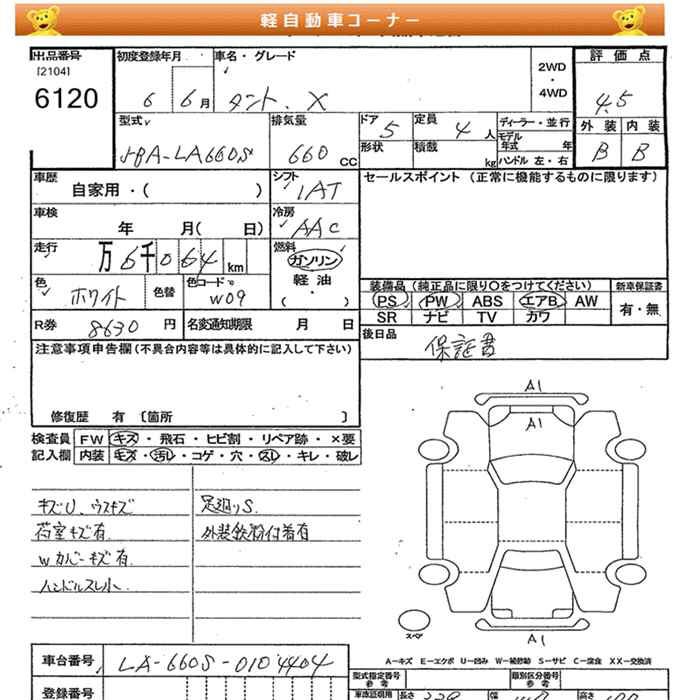 軽自動車コーナー
出品番号 初度登録年月 車名・グレード 評価点
[2104] 2WD
6120 6 6月 タント.X ・ 4.5
4WD
型式 排気量 ドア 定員 ディーラー・並行 外装 内装
5 4人 モデル年式 年
JBA-LA660S 660cc 形状 積載 kg ハンドル 左・右 B B
車歴 シフト セールスポイント (正常に機能するものに限ります)
自家用・( ) 1AT
車検 冷房
年 月( 日) AAC
走行 万6千064km 燃料
ガソリン
色 色替 色コード 軽油 装備品 (純正品に限り○をつけてください) 新車保証書
ホワイト W09 ・( ) PS PW ABS エアB AW 有・無
SR ナビ TV カワ
R券 8630円 名変通知期限 月 日 後日品
保証書
注意事項申告欄(不具合内容等は具体的に記入して下さい)
A1
A1
修復歴 有 〔箇所 〕
検査員 FW キズ・飛石・ヒビ割・リペア跡・×要
記入欄 内装 キズ・汚レ・コゲ・穴・スレ・キレ・破レ
キズU.ウスキズ 足廻りS.
荷室キズ有 外装鉄粉付着有
Wカバーキズ有
ハンドルスレ小
スペア
A1
車台番号 LA-660S-0104404 A−キズ E−エクボ U−凹み W−補修跡 S−サビ C−腐食 XX−交換済
型式指定番号 参考 類別区分番号 参考
登録番号 車庫証明用 長さ 幅 高さ